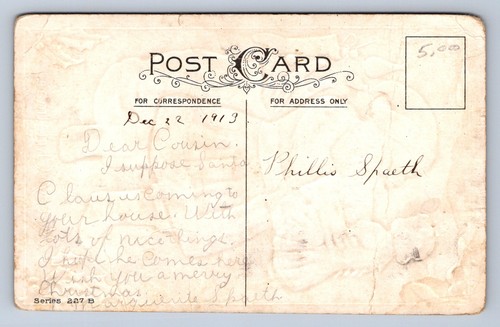 POST CARD
5.00
FOR CORRESPONDENCE
FOR ADDRESS ONLY
Dec 22 1913
Dear Cousin.
I suppose Santa
Claus is coming to
your house. With
lots of nice things.
I hope he comes here
Wish you a merry
Christmas.
Marguerite Spaeth
Phillis Spaeth
Series 227 B